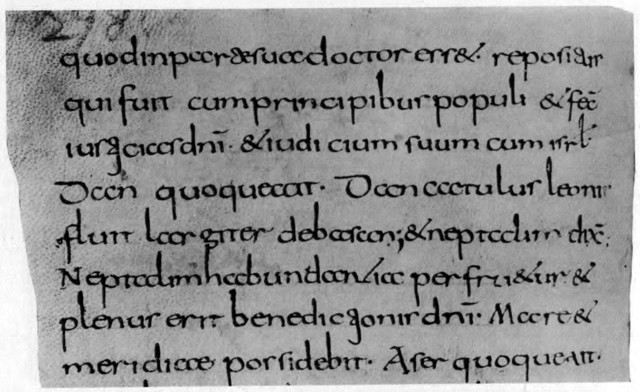 298
quod in parte sua doctor ess&. repositus
qui fuit cum principibus populi & fec̄
iustitias dnī. & iudicium suum cum isrl
Dan quoque ait. Dan catulus leonis
fluit largiter debasan; & neptalim dix̄.
Neptalim habundantia perfru&ur &
plenus erit benedictionis dnī. Mare &
meridiae possidebit. Aser quoque ait.